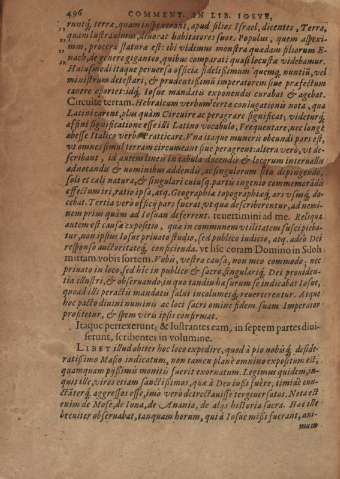 496 COMMENT. IN LIB. IOSVE,
runtq́; terra, quam inspexerant, apud filios Israel, dicentes, Terra,
quam lustrauimus, deuorat habitatores suos. Populus, quem aspexi-
mus, procera statura est: ibi vidimus monstra quædam filiorum E-
nach, de genere giganteo, quibus comparati quasi locustæ videbamur.
Huiusmodi itaque peruersa officia fidelissimum quemq; nuntiũ, vel
ministrum detestari, & prudentissimi imperatorem siue præfectum
cauere oportet: idq́; Iosue mandatis exponendis curabat & agebat.
Circuite terram. Hebraicum verbum tertiæ coniugationis nota, qua
Latini carent, plus quàm Circuire ac peragrare significat, videturq́;
affini significatione esse illi Latino vocabulo, Frequentare, nec longè
abesse Italico verbo Pratticare. Vna itaque muneris obeundi pars est,
vt omnes simul terram circumeant siue peragrent: altera verò, vt de-
scribant, id autem lineis in tabula ducendis & locorum interuallis
adnotandis & nominibus addendis, ac singulorum situ depingendo,
soli & cæli natura, & singulari cuiusq. partis ingenio commemorãdo
effectum iri, ratio ipsa, atq; Geographiæ topographiæq́; ars vsusq́; do-
cebat. Tertia verò officij pars fuerat, vt quæ describerentur, ad nemi-
nem priùs quàm ad Iosuam deferrent. reuertimini ad me. Reliqua
autem est causæ expositio, quia in communem vtilitatem suscipieba-
tur, non ipsius Iosue priuato studio, sed publico iudicio, atq; adeò Dei
responso auctoritateq́; censcienda. vt hîc coram Domino in Siloh
mittam vobis sortem. Vobis, vestra causa, non meo commodo, nec
priuato in loco, sed hîc in publico & sacro, singulariq́; Dei prouiden-
tia illustri, & obseruando, in quo tandiu ha surum se indicabat Iosue,
quoad illi peracto mandato salui incolumesq́; reuerterentur. Atque
hoc pacto diuini numinis ac loci sacri omine fidem suam Imperator
profitetur, & spem viris ipsis confirmat.
Itaque perrexerunt, & lustrantes eam, in septem partes diui-
serunt, scribentes in volumine.
LIBET illud obiter hoc loco expedire, quod à pio nobisq́; deside-
ratissimo Masio indicatum, non tamen planè omnino expositum est,
quamquam pijssimis monitis fuerit exornatum. Legimus quidem, in-
quit ille, viros etiam sanctissimos, quæ à Deo iussi fuêre, timidè con-
ctãterq́; aggressos esse, imò verò detrectauisse tergiuersatos. Nota est
enim de Mose, de Iona, de Anania, de alijs historia sacra. Hæc ille
breuiter obseruabat, tanquam horum, qui à Iosue missi fuerant, ani-